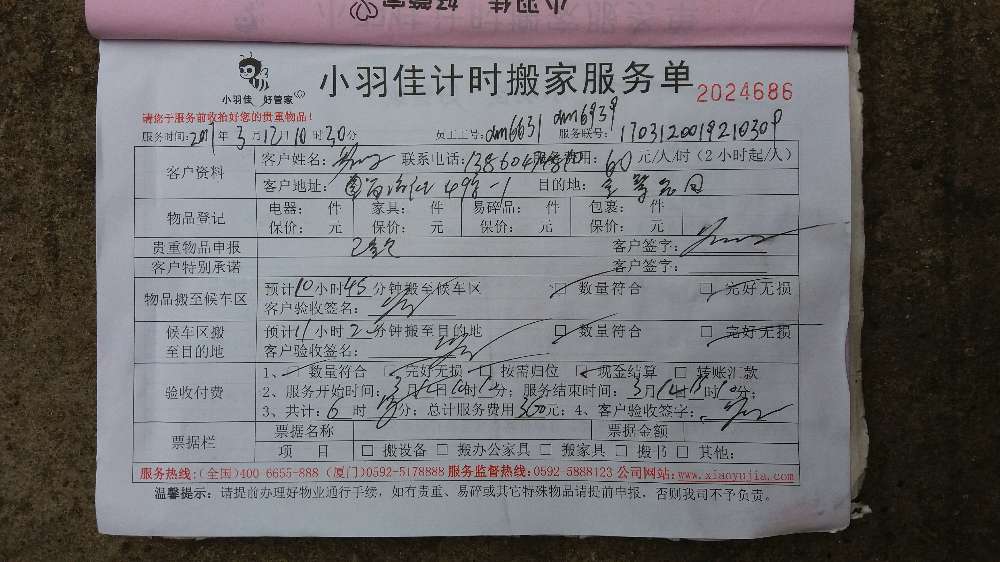 小羽佳 好管家
小羽佳 好管家
小羽佳计时搬家服务单
2024686
请您于服务前收拾好您的贵重物品!
服务时间: 2017年3月12日10时30分 员工工号: dm6631 dm6939 服务联号: 170312001921030
客户资料
客户姓名: 联系电话: 服务费用: 60元/人/时(2小时起/人)
客户地址: 49号-1 目的地:
物品登记
电器: 件 家具: 件 易碎品: 件 包裹: 件
保价: 元 保价: 元 保价: 元 保价: 元
贵重物品申报 客户签字:
客户特别承诺 客户签字:
物品搬至候车区
预计10小时45分钟搬至候车区 □ 数量符合 □ 完好无损
客户验收签名:
候车区搬至目的地
预计11小时2分钟搬至目的地 □ 数量符合 □ 完好无损
客户验收签名:
验收付费
1、 数量符合 □ 完好无损 □ 按需归位 □ 现金结算 □ 转账汇款
2、服务开始时间: 3月 日 时 分; 服务结束时间: 3月 日 时 分;
3、共计: 6时 分; 总计服务费用360元; 4、客户验收签字:
票据栏
票据名称 票据金额
项 目 □ 搬设备 □ 搬办公家具 □ 搬家具 □ 搬书 □ 其他:
服务热线:(全国)400-6655-888 (厦门)0592-5178888 服务监督热线:0592-5888123 公司网站:www.xiaoyujia.com
温馨提示: 请提前办理好物业通行手续, 如有贵重、易碎或其它特殊物品请提前申报, 否则我司不予负责。